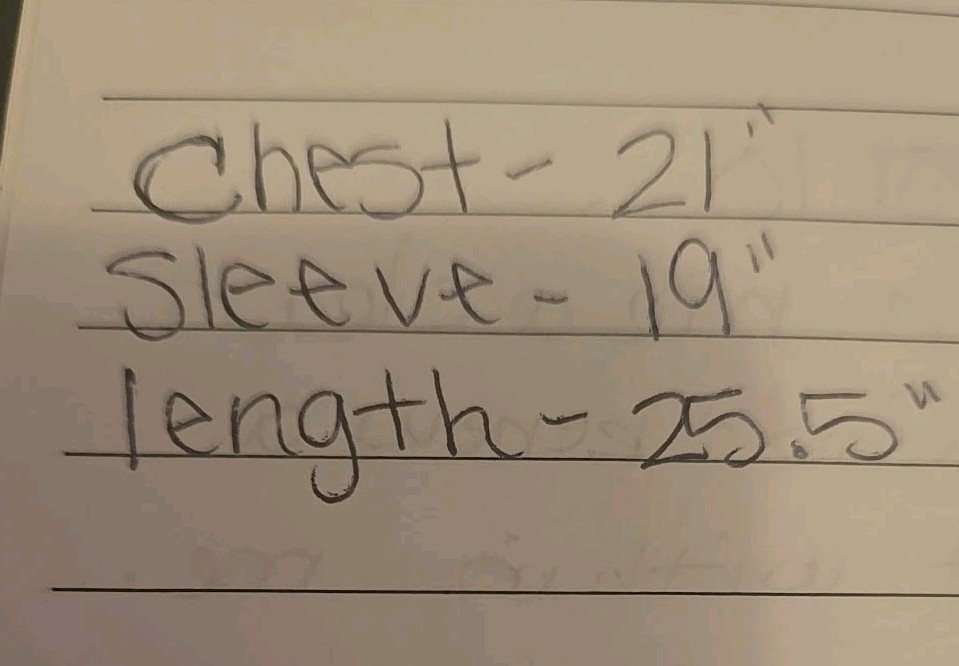 Chest - 21"
Sleeve - 19"
length - 25.5"